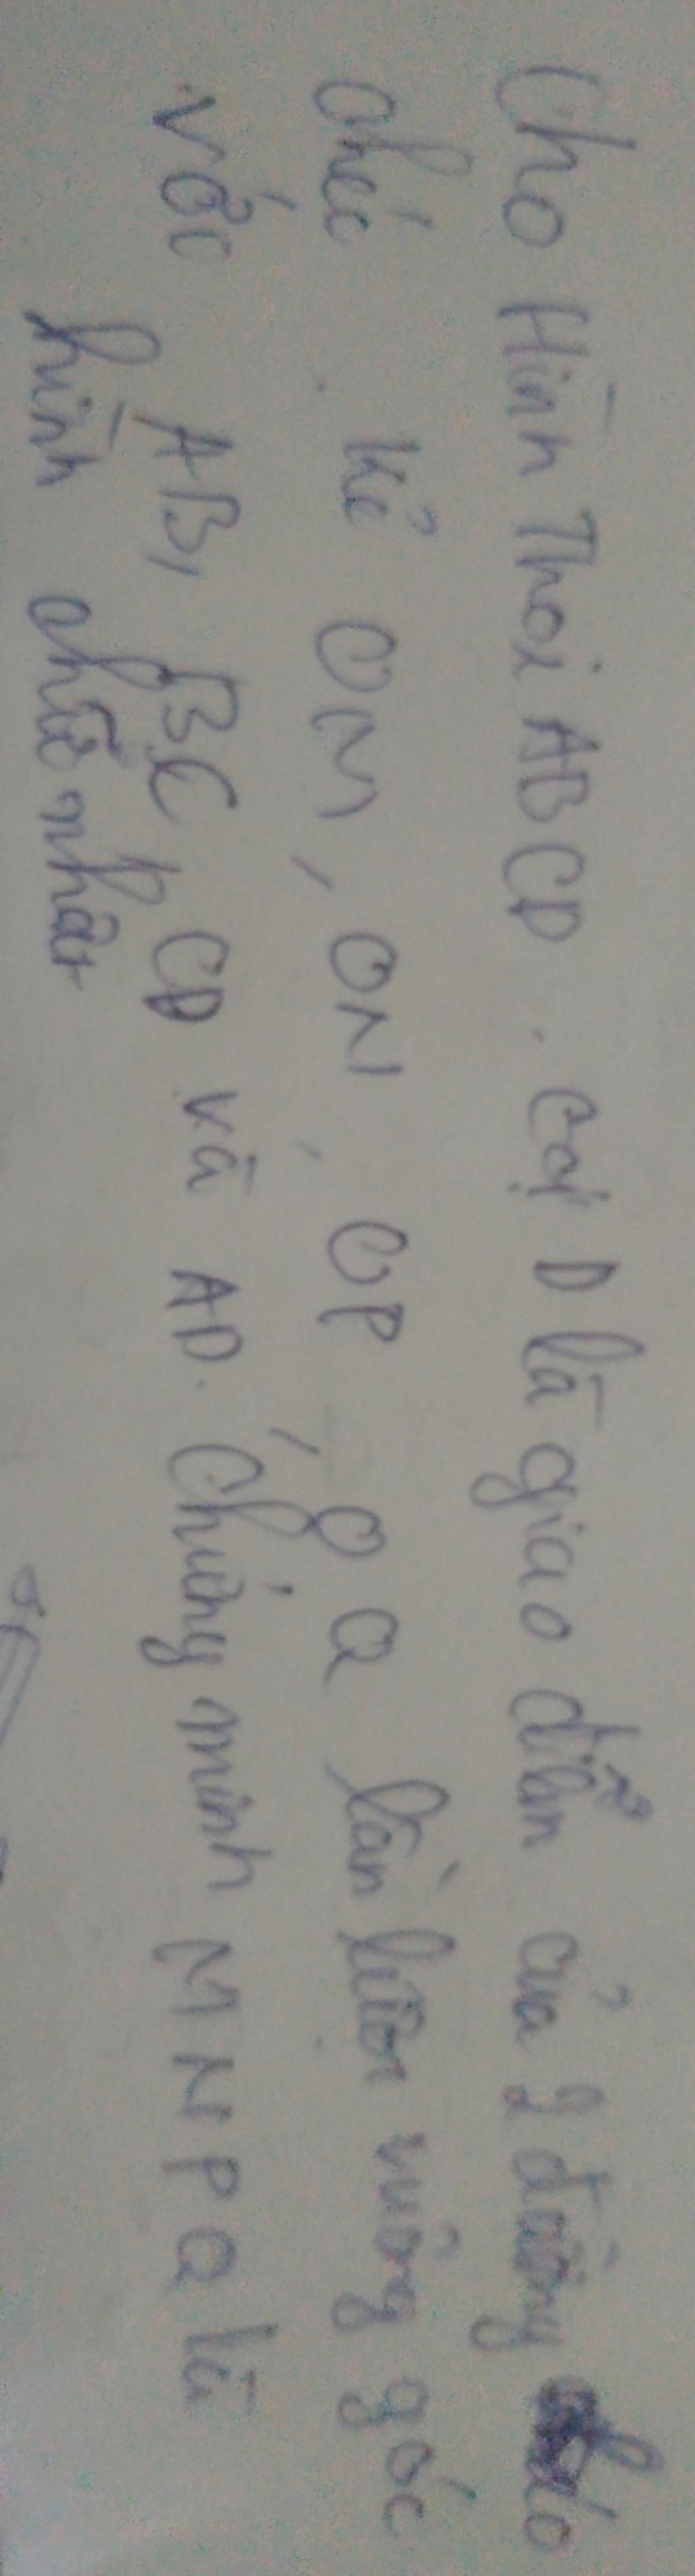 Cho Hình Thoi ABCD. Gọi O là giao điểm của 2 đường chéo
chéo. kẻ OM, ON, OP, OQ lần lượt vuông góc
với AB, BC, CD và AD. Chứng minh MNPQ là
hình chữ nhật